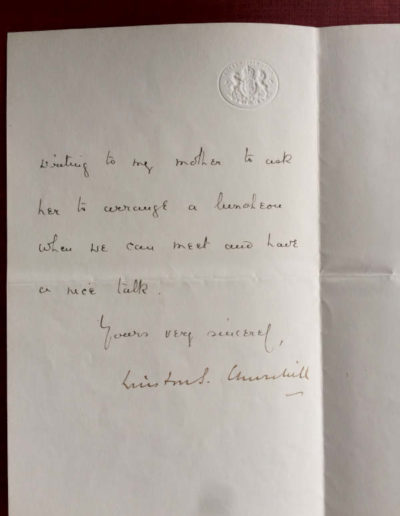 writing to my mother to ask
her to arrange a luncheon
when we can meet and have
a nice talk.
Yours very sincerely,
Winston S. Churchill